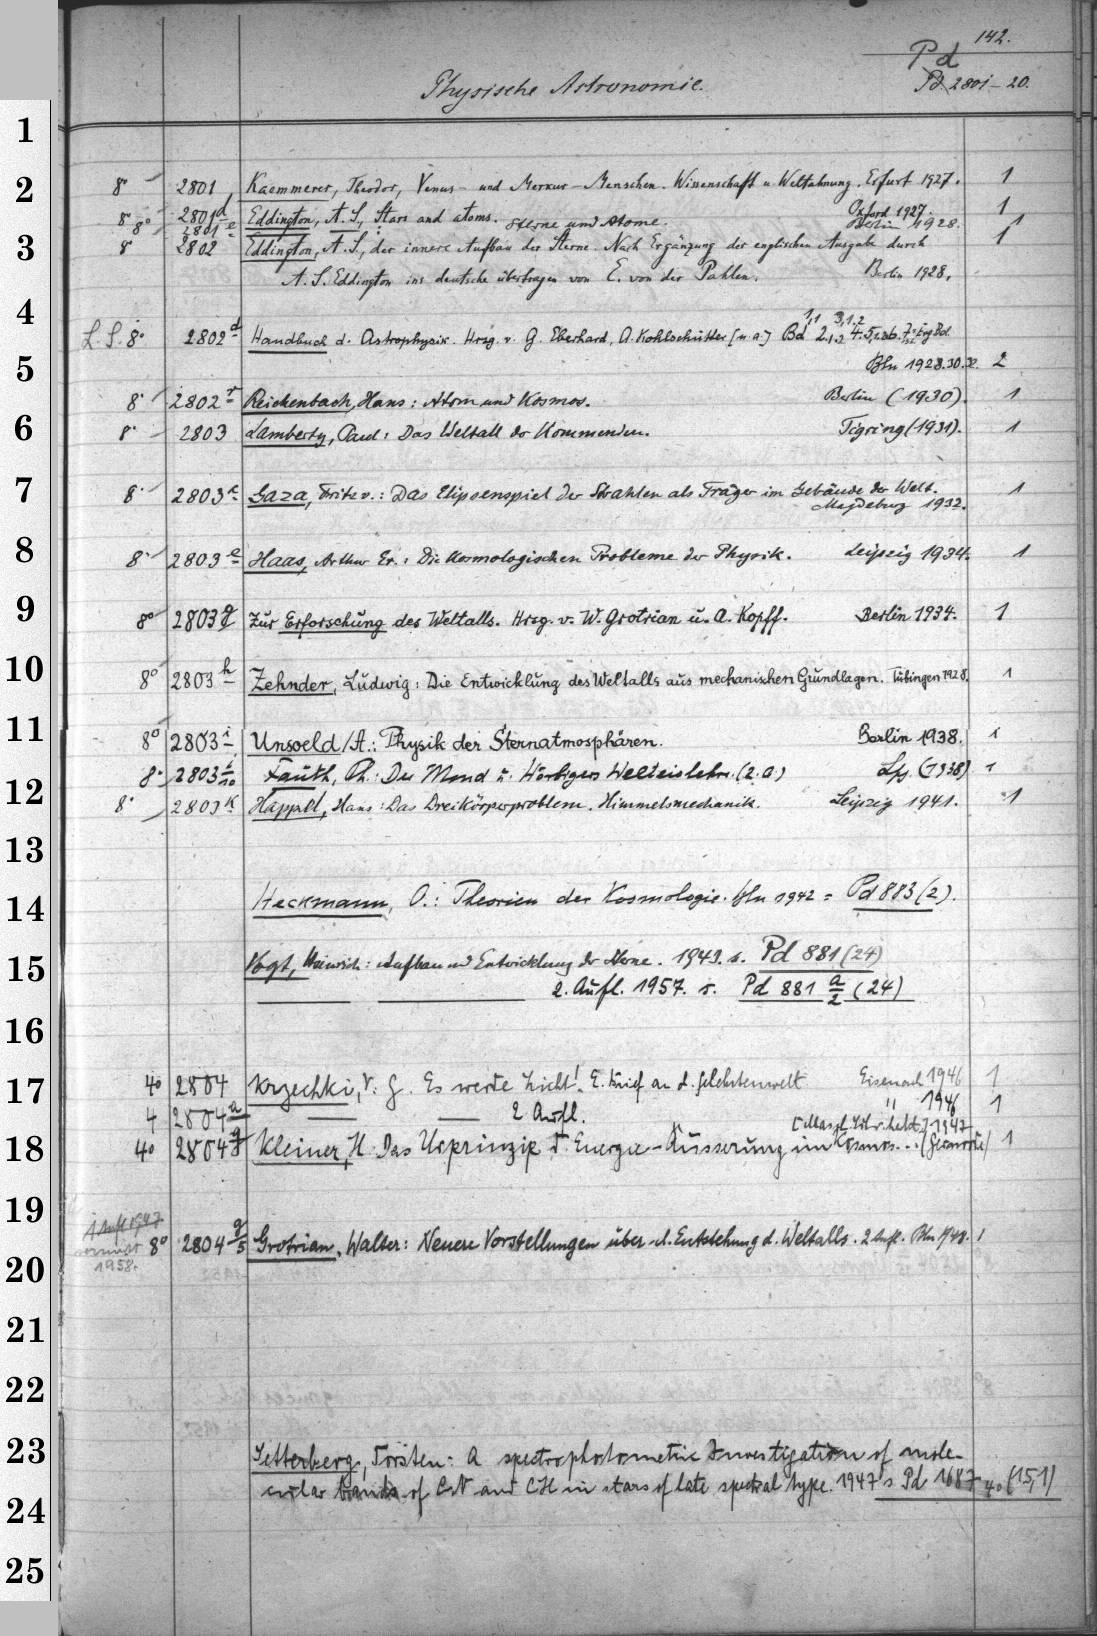 142.
Pd
Physische Astronomie. Pd. 2801-20.
1
2 8° 2801 Kaemmerer, Theodor, Venus- und Merkur-Menschen. Wissenschaft u. Weltahnung. Erfurt 1927. 1
8° 2801d Eddington, A. S., Stars and atoms. Oxford 1927. 1
8° 2801e Sterne und Atome. Berlin 1928. 1
3 8° 2802 Eddington, A. S., der innere Aufbau der Sterne. Nach Ergänzung der englischen Ausgabe durch
A. S. Eddington ins deutsche übertragen von E. von der Pahlen. Berlin 1928.
4 L. S. 8° 2802d Handbuch d. Astrophysik. Hrsg. v. G. Eberhard, A. Kohlschütter [u. a.] Bd
5 Bln 1928.30. 2
8° 2802r Reichenbach, Hans: Atom und Kosmos. Berlin (1930). 1
6 8° 2803 Lamberty, Paul: Das Weltall der Kommenden. (1931). 1
7 8° 2803c Gaza, Fritz v.: Das Elipsenspiel der Strahlen als Träger im Gebäude der Welt. 1
Magdeburg 1932.
8 8° 2803e Haas, Arthur Er.: Die kosmologischen Probleme der Physik. Leipzig 1934. 1
9 8° 2803g Zur Erforschung des Weltalls. Hrsg. v. W. Grotrian u. A. Kopff. Berlin 1934. 1
10 8° 2803h Zehnder, Ludwig: Die Entwicklung des Weltalls aus mechanischen Grundlagen. Tübingen 1928. 1
11 8° 2803i Unsoeld/A.: Physik der Sternatmosphären. Berlin 1938. 1
8° 2803i/10 Fauth, Ph.: Der Mond u. Hörbigers Welteislehre. (2. A.) Lpz. (1938) 1
12 8° 2803k Happel, Hans: Das Dreikörperproblem. Himmelsmechanik. Leipzig 1941. 1
13
14 Heckmann, O.: Theorien der Kosmologie. Bln 1942 = Pd 883 (2).
15 Vogt, Heinrich: Aufbau und Entwicklung der Sterne. 1943. s. Pd 881 (24)
2. Aufl. 1957. s. Pd 881 a/2 (24)
16
17 4° 2804 Krzechki, V. G. Es werde Licht! E. Brief an d. Gelehrtenwelt Eisenach 1946 1
4 2804a 2 Aufl. " 1946 1
18 4° 2804g Kleiner, H. Das Urprinzip d. Energie-Äusserung im Kosmos... 1947 1
19 1. Aufl 1947
vermisst 8° 2804 g/5 Grotrian, Walter: Neuere Vorstellungen über d. Entstehung d. Weltalls. 2 Aufl. Bln 1948. 1
20 1958.
21
22
23 Setterberg, Torsten: A spectrophotometric Investigation of mole-
24 cular bands of CN and CH in stars of late spectral type. 1947 s Pd 1687 4° (15,1)
25